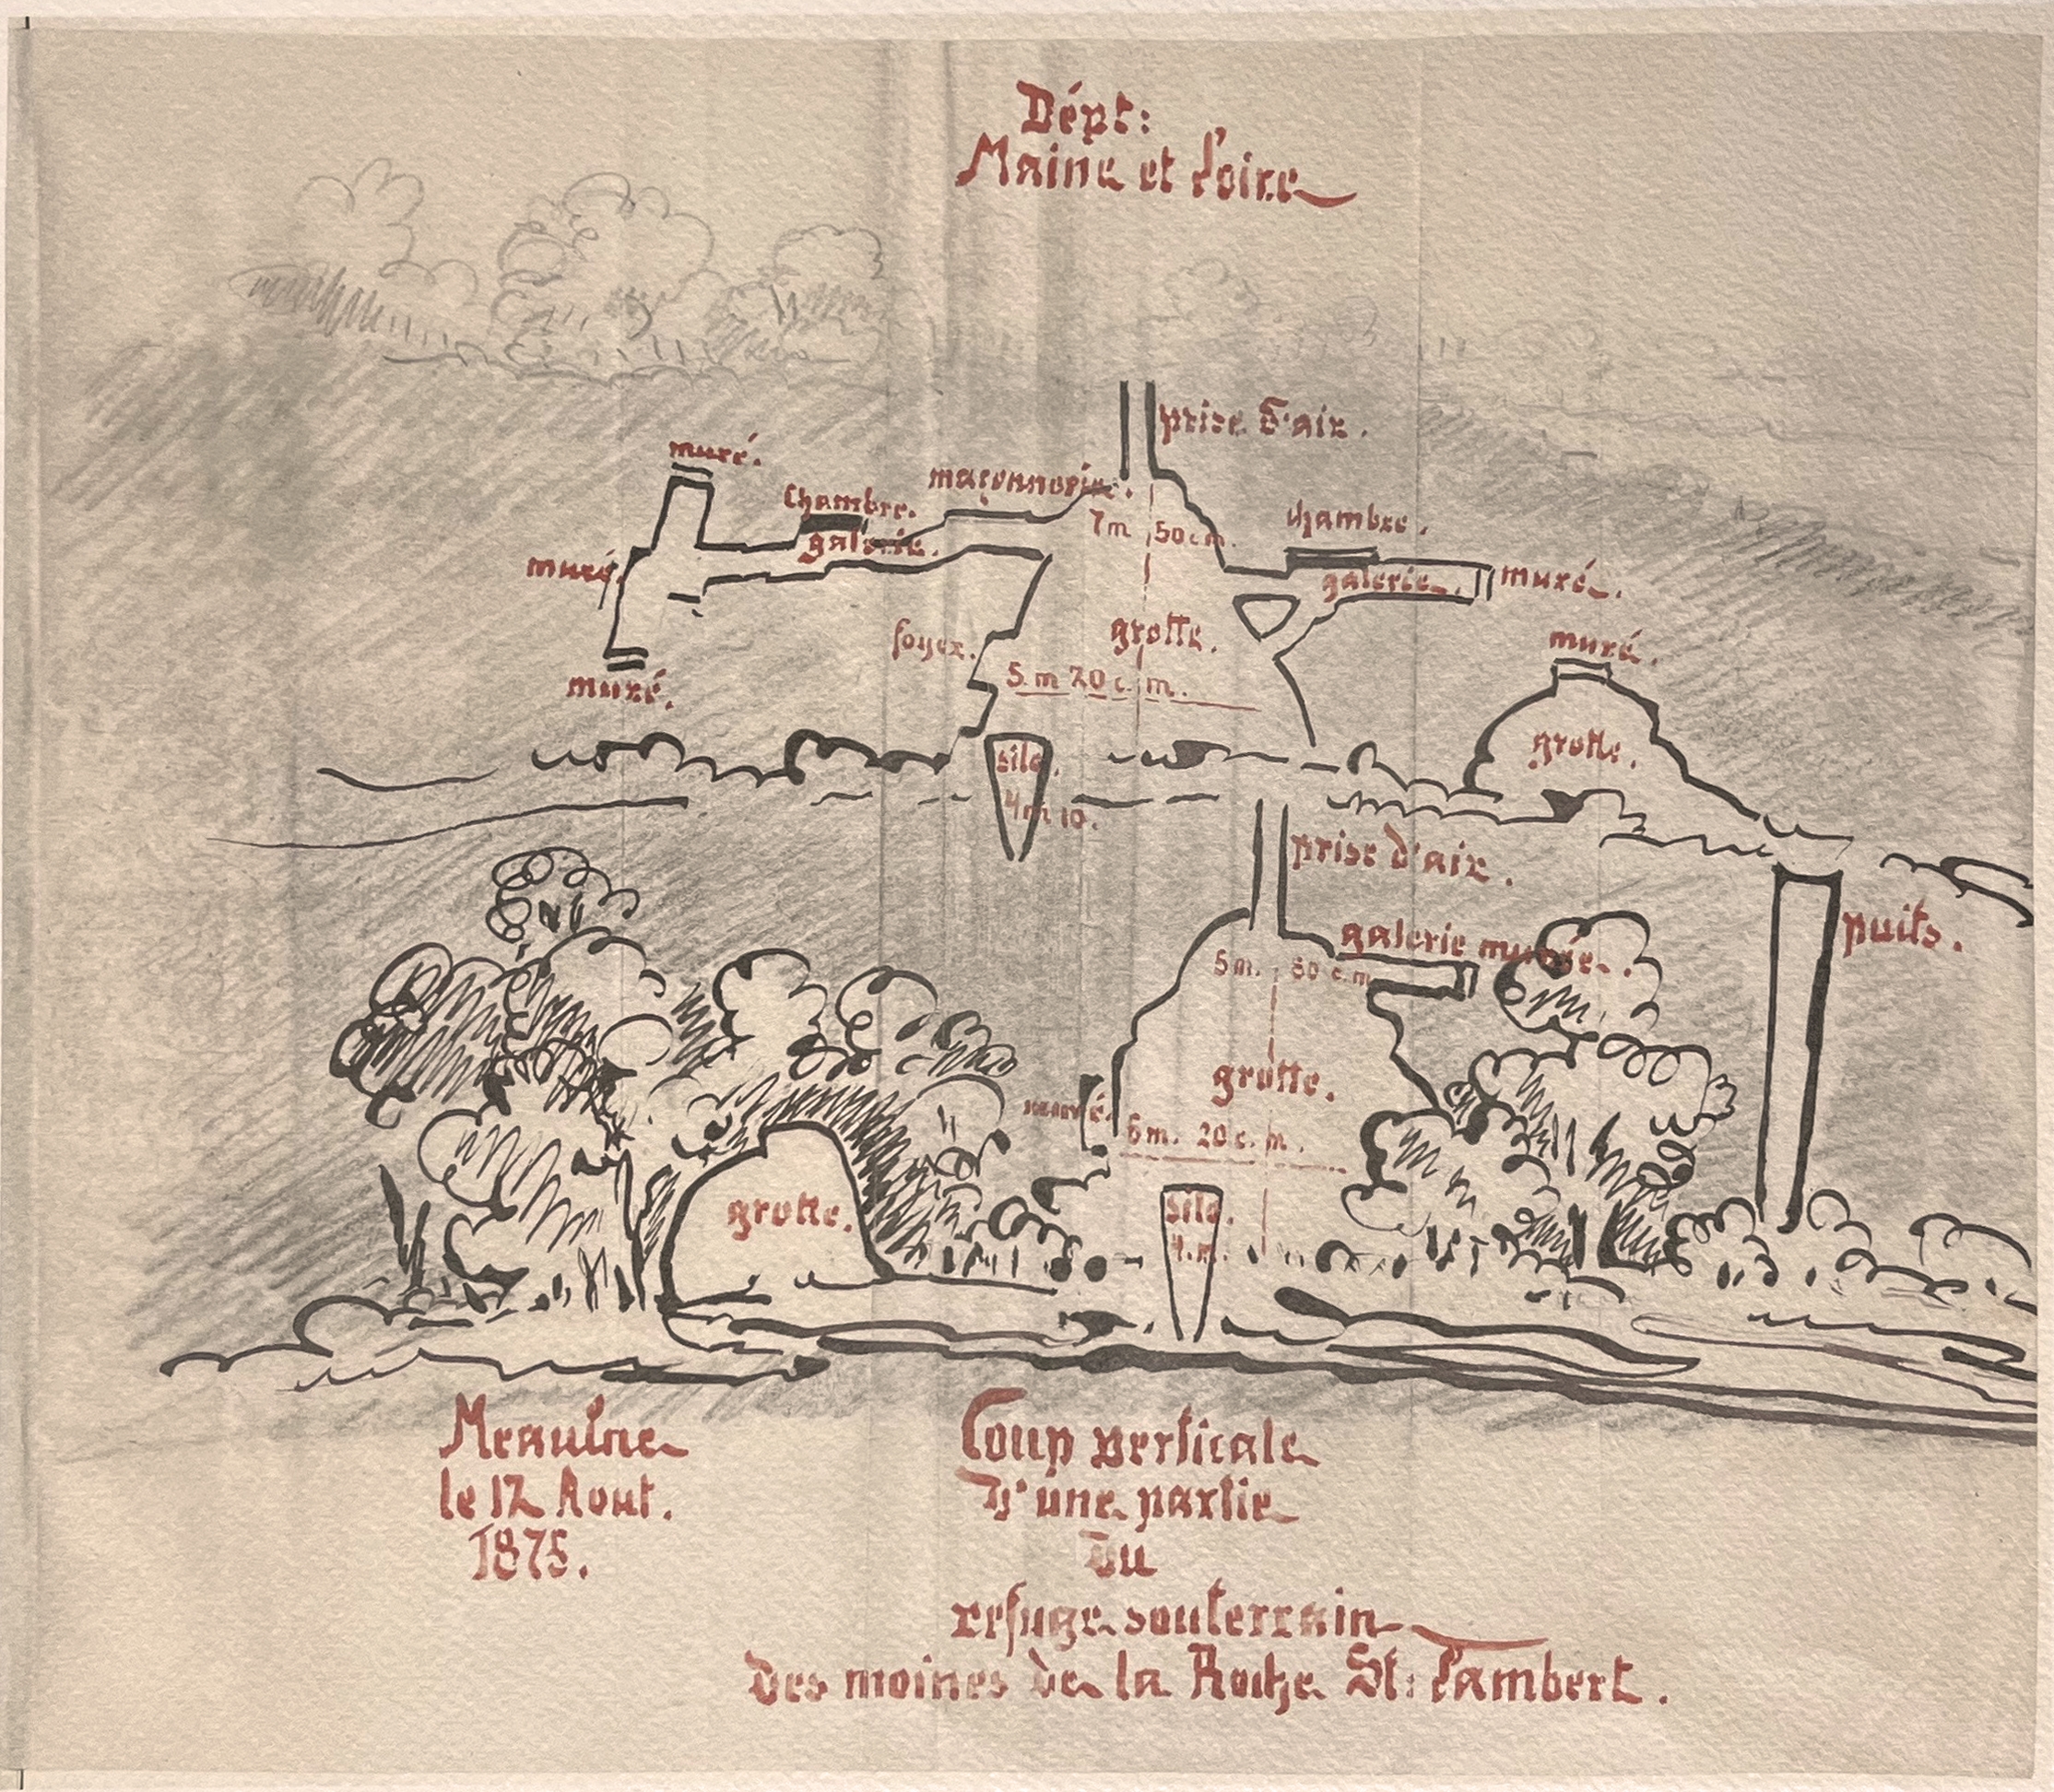 Dépt:
Maine et Loire
prise d'air.
muré.
maçonnerie.
Chambre.
chambre.
7m 50cm.
galerie.
muré
galerie.
muré.
foyer.
grotte.
muré.
5.m 20 c.m.
muré.
grotte.
silo.
4m 10.
prise d'air.
puits.
galerie murée.
5m. 80 c.m
grotte.
muré.
6m. 20c.m.
grotte.
silo.
4.m.
Meaulne
le 12 Aout.
1875.
Coup verticale
d'une partie
du
refuge souterrain
des moines de la Roche St: Lambert.